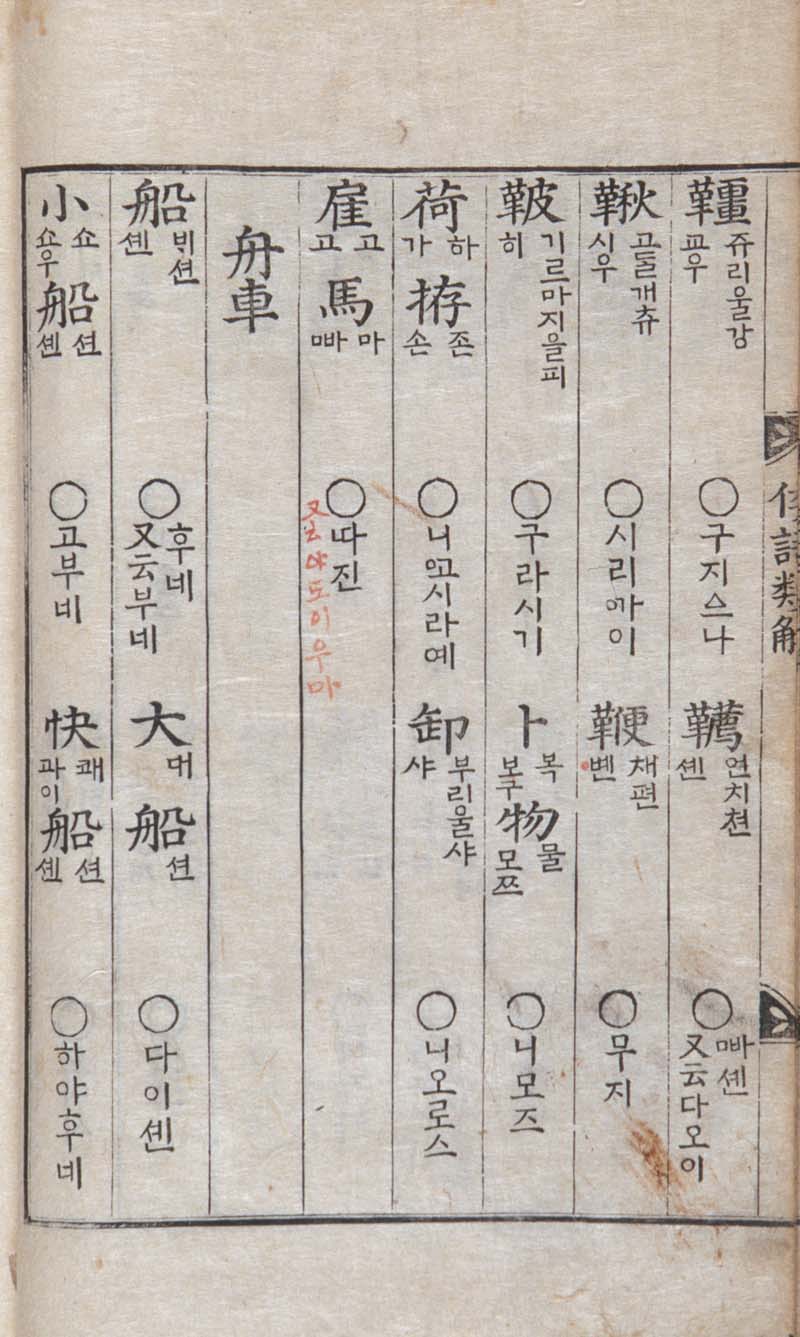 倭語類解
韁 쥬리울강 교우 ○구지스나 韉 연치쳔 셴 ○빠셴 又云다오이
鞦 고둘개츄 시우 ○시리ᅁᅡ이 鞭 채편 볜 ○무지
鞁 기르마지을피 히 ○구라시기 卜 복 보구 物 물 모쯔 ○니모즈
荷 하 가 拵 존 손 ○니ᅁᅩ시라예 卸 부리울샤 샤 ○니오로스
雇 고 고 馬 마 빠 ○따진
又云야도이우마
舟車
船 ᄇᆡ션 셴 ○후네 又云부네 大 대 船 션 ○다이셴
小 쇼 쇼우 船 션 셴 ○고부네 快 쾌 과이 船 션 셴 ○하야후네